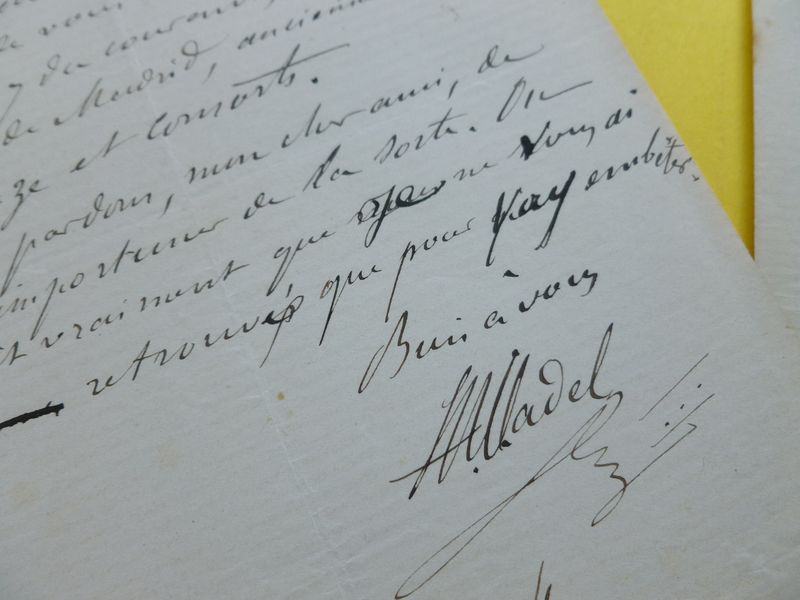 de vous
du courant,
de Madrid, ancienne
ze et consorts.
pardon, mon cher ami, de
importuner de la sorte. On
vraiment que je ne vous ai
retrouvé que pour vous embêter.
Bien à vous